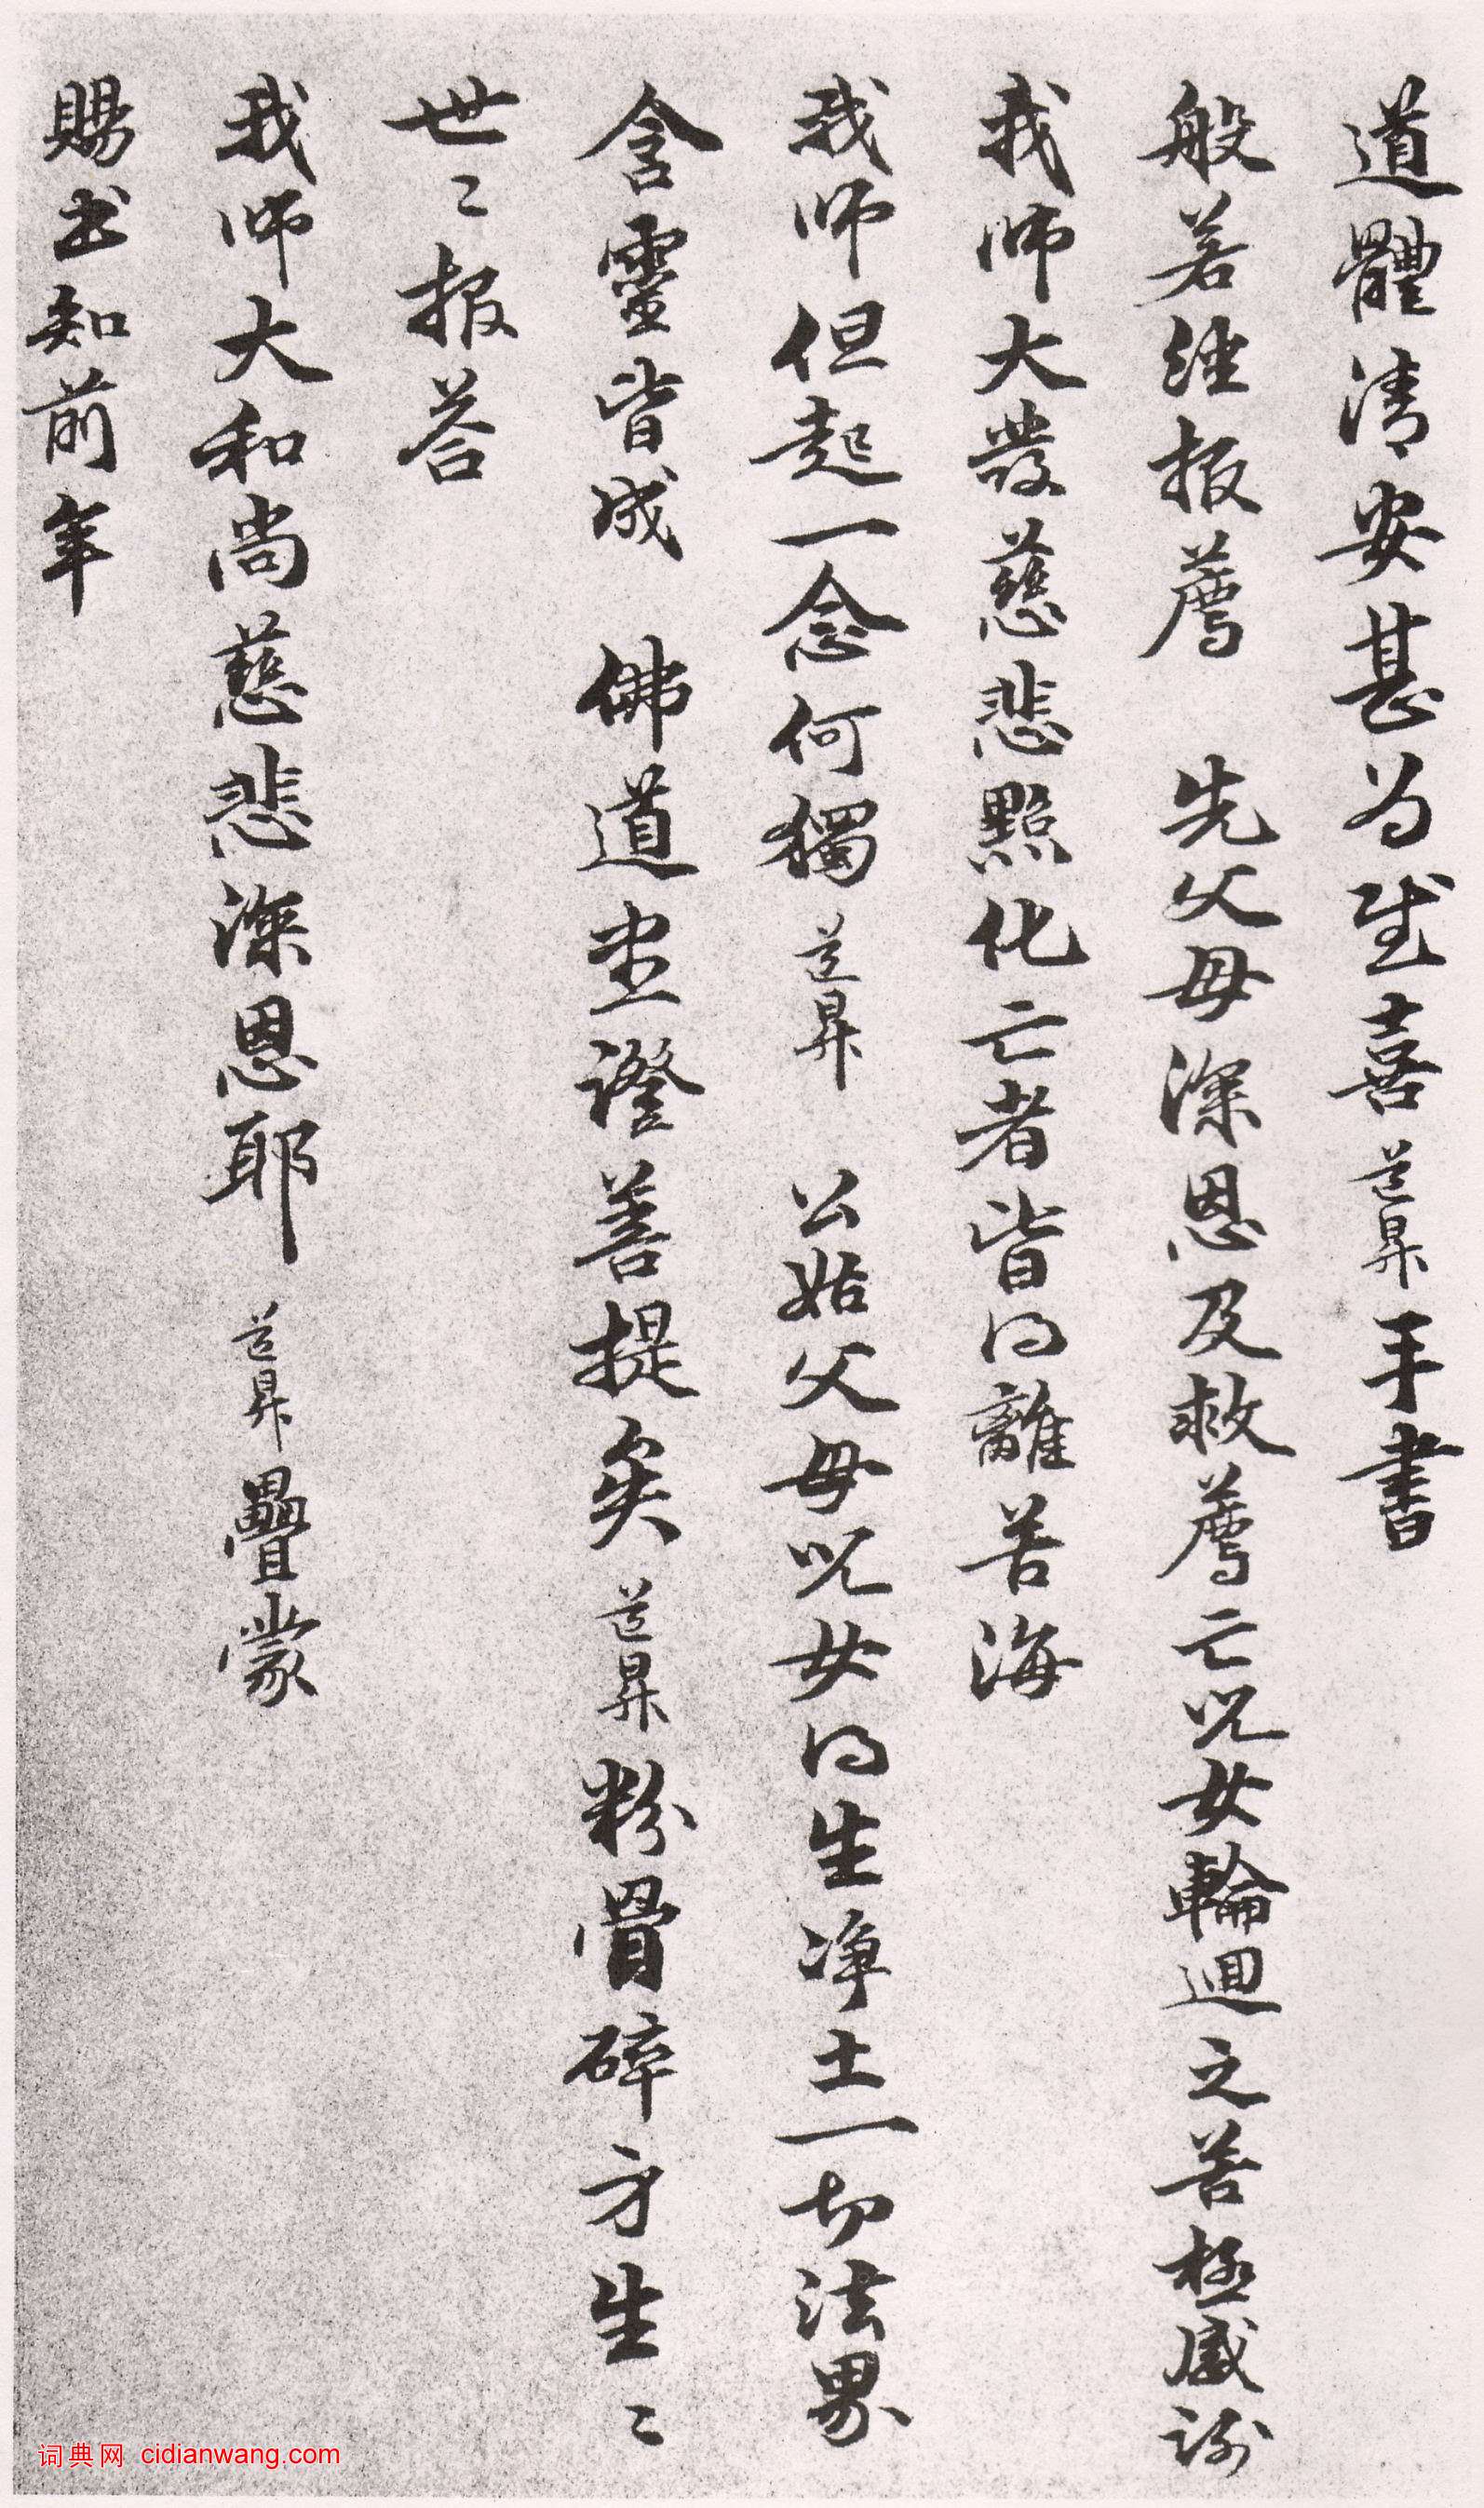 道體清安甚為喜道昇手書
般若經報薦 先父母深恩及救薦亡兒女輪迴之苦極感謝
我師大發慈悲點化亡者皆得離苦海
我師但起一念何獨道昇 公姑父母兒女得生淨土一切法界
含靈皆成 佛道盡證菩提矣道昇粉骨碎身生〻
世〻報答
我師大和尚慈悲深恩耶 道昇疊蒙
賜書知前年
词典网 cidianwang.com